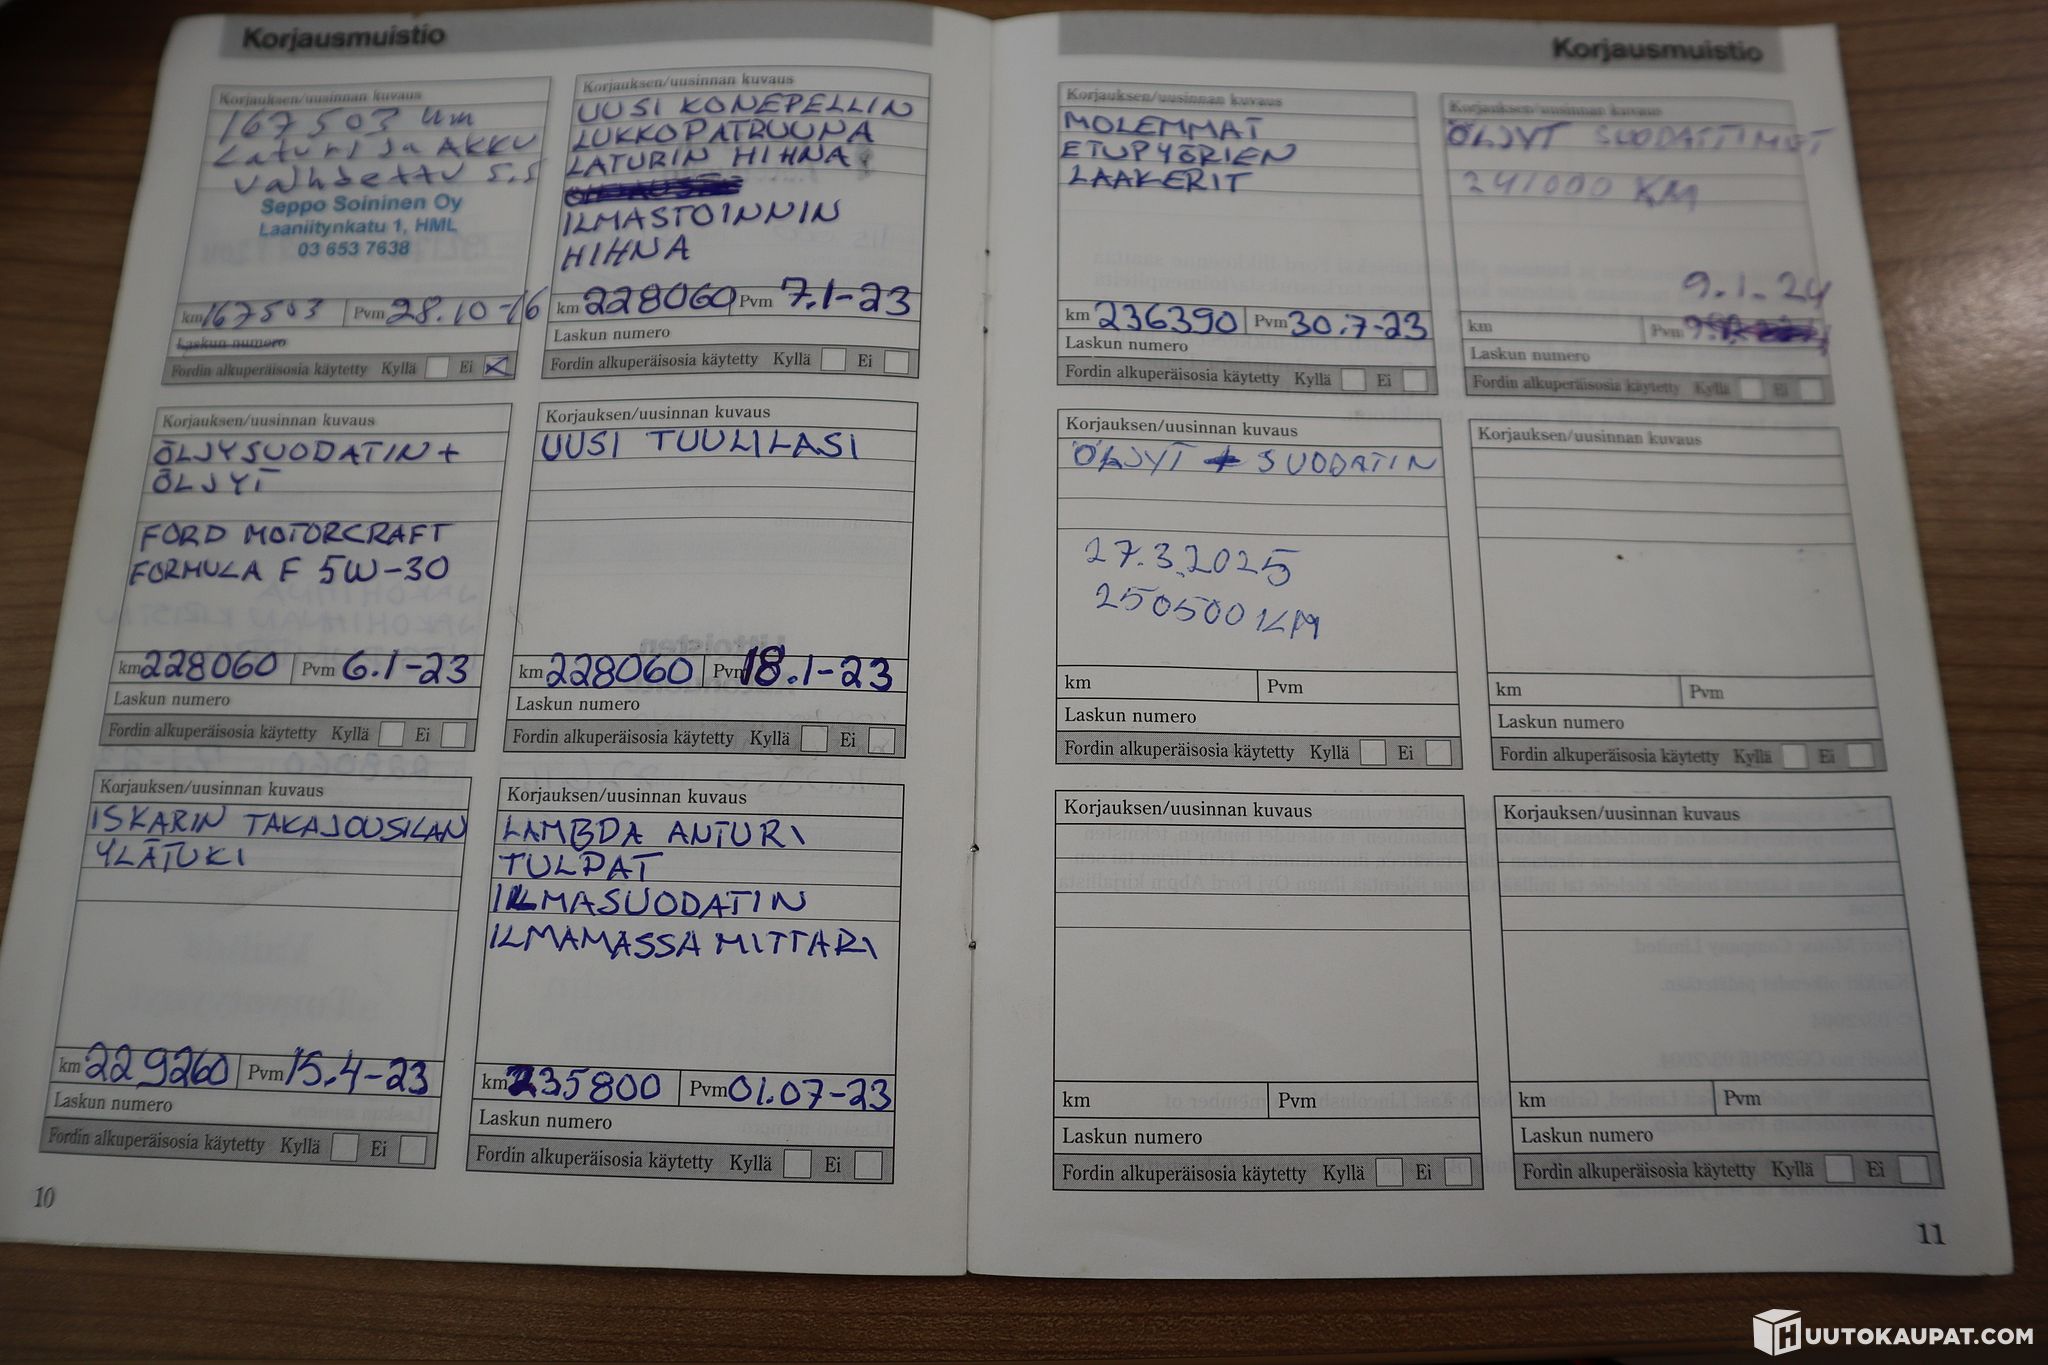 Korjausmuistio
Korjauksen/uusinnan kuvaus
167503 km
Laturi ja AKKU
vaihdettu 5.5
Seppo Soininen Oy
Laaniitynkatu 1, HML
03 653 7638
km 167503 Pvm 28.10-16
Laskun numero
Fordin alkuperäisosia käytetty Kyllä Ei
Korjauksen/uusinnan kuvaus
ÖLJYSUODATIN +
ÖLJYT
FORD MOTORCRAFT
FORMULA F 5W-30
km 228060 Pvm 6.1-23
Laskun numero
Fordin alkuperäisosia käytetty Kyllä Ei
Korjauksen/uusinnan kuvaus
ISKARIN TAKAJOUSILAN
YLÄTUKI
km 229260 Pvm 15.4-23
Laskun numero
Fordin alkuperäisosia käytetty Kyllä Ei
Korjauksen/uusinnan kuvaus
UUSI KONEPELLIN
LUKKOPATRUUNA
LATURIN HIHNA
ILMASTOINNIN
HIHNA
km 228060 Pvm 7.1-23
Laskun numero
Fordin alkuperäisosia käytetty Kyllä Ei
Korjauksen/uusinnan kuvaus
UUSI TUULILASI
km 228060 Pvm 18.1-23
Laskun numero
Fordin alkuperäisosia käytetty Kyllä Ei
Korjauksen/uusinnan kuvaus
LAMBDA ANTURI
TULPAT
ILMASUODATIN
ILMAMASSA MITTARI
km 235800 Pvm 01.07-23
Laskun numero
Fordin alkuperäisosia käytetty Kyllä Ei
10
Korjausmuistio
Korjauksen/uusinnan kuvaus
MOLEMMAT
ETUPYÖRIEN
LAAKERIT
km 236390 Pvm 30.7-23
Laskun numero
Fordin alkuperäisosia käytetty Kyllä Ei
Korjauksen/uusinnan kuvaus
ÖLJYT + SUODATIN
27.3.2025
250500 KM
km Pvm
Laskun numero
Fordin alkuperäisosia käytetty Kyllä Ei
Korjauksen/uusinnan kuvaus
km Pvm
Laskun numero
Fordin alkuperäisosia käytetty Kyllä Ei
Korjauksen/uusinnan kuvaus
ÖLJYT SUODATTIMET
241000 KM
9.1.24
km Pvm
Laskun numero
Fordin alkuperäisosia käytetty Kyllä Ei
Korjauksen/uusinnan kuvaus
km Pvm
Laskun numero
Fordin alkuperäisosia käytetty Kyllä Ei
Korjauksen/uusinnan kuvaus
km Pvm
Laskun numero
Fordin alkuperäisosia käytetty Kyllä Ei
11
HUUTOKAUPAT.COM